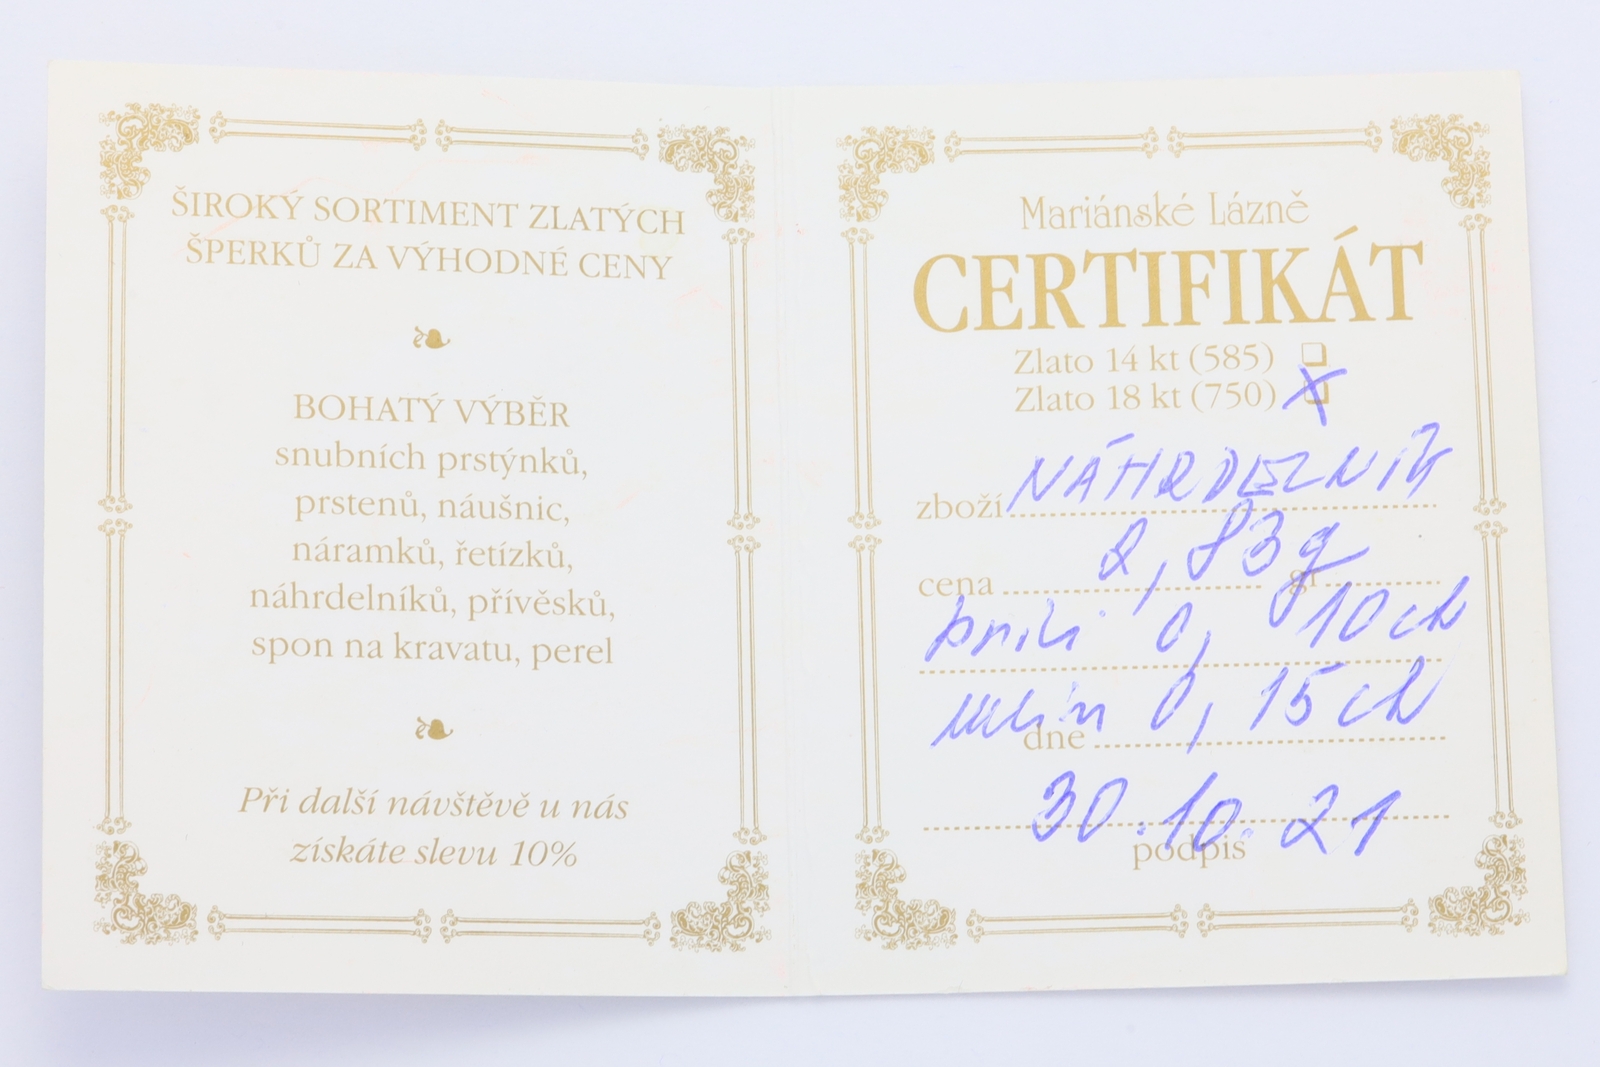 ŠIROKÝ SORTIMENT ZLATÝCH
ŠPERKŮ ZA VÝHODNÉ CENY
BOHATÝ VÝBĚR
snubních prstýnků,
prstenů, náušnic,
náramků, řetízků,
náhrdelníků, přívěsků,
spon na kravatu, perel
Při další návštěvě u nás
získáte slevu 10%
Mariánské Lázně
CERTIFIKÁT
Zlato 14 kt (585) ❑
Zlato 18 kt (750) ❑ X
zboží NÁHRDELNÍK
cena 2,83g gr
0,10ct
0,15ct
dne
30.10.21
podpis